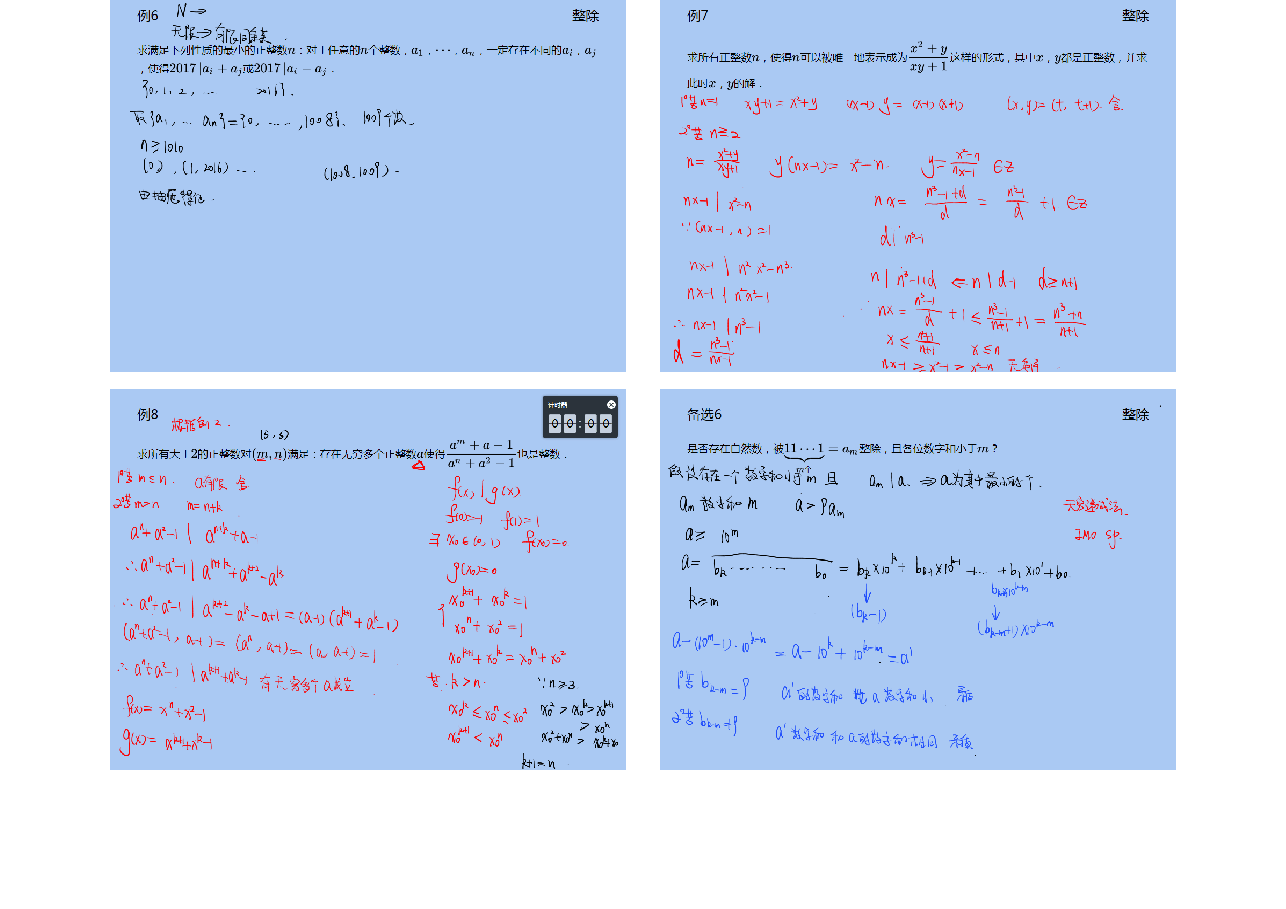 例6
N →
整除
求满足下列性质的最小的正整数n：对于任意的n个整数，a₁，⋯，aₙ，一定存在不同的aᵢ，aⱼ
，使得2017 | aᵢ + aⱼ或2017 | aᵢ − aⱼ．
{0, 1, 2, ... 2016}.
取{a₁, ... aₙ} = {0, ......, 1008}, 1009个数.
n ≥ 1010
(0), (1, 2016) .... (1008, 1009) .
由抽屉得
例7
整除
求所有正整数n，使得n可以被唯一地表示成为 (x² + y)/(xy + 1) 这样的形式，其中x，y都是正整数，并求
此时x，y的解．
1°若n=1 xy+1 = x²+y (x-1)y = (x-1)(x+1) (x,y) = (t, t+1) 舍
2°若 n≥2
n = (x²+y)/(xy+1) y(nx-1) = x²-n y = (x²-n)/(nx-1) ∈Z
nx-1 | x²-n
∵ (nx-1, n) = 1
nx-1 | n²x²-n³
nx-1 | n²x²-1
∴ nx-1 | n³-1
d = (n³-1)/(nx-1)
nx = (n³-1+d)/d = (n³-1)/d + 1 ∈Z
d | n³-1
n | n³-1+d ⇐ n | d-1 d≥n+1
nx = (n³-1)/d + 1 ≤ (n³-1)/(n+1) + 1 = (n³+n)/(n+1)
x ≤ (n²+1)/(n+1) x≤n
nx-1 ≥ x²-1 > x²-n
例8
计时器
0 0 : 0 0
(5, 3)
求所有大于2的正整数对(m, n)满足：存在无穷多个正整数a使得 (aᵐ + a − 1)/(aⁿ + a² − 1) 也是整数．
1°若 m≤n. 舍
2°若 m>n m=n+k
aⁿ+a²-1 | aⁿ⁺ᵏ+a-1
∴ aⁿ+a²-1 | aⁿ⁺ᵏ+aᵏ⁺²-aᵏ
∴ aⁿ+a²-1 | aᵏ⁺²-aᵏ-a+1 = (a-1)(aᵏ⁺¹+aᵏ-1)
(aⁿ+a²-1, a-1) = (aⁿ, a-1) = (a, a-1) = 1
∴ aⁿ+a²-1 | aᵏ⁺¹+aᵏ-1 有无穷多个a成立
f(x) = xⁿ+x²-1
g(x) = xᵏ⁺¹+xᵏ-1
f(x) | g(x)
f(0)=-1 f(1)=1
∃ x₀∈(0, 1) f(x₀)=0
g(x₀)=0
x₀ᵏ⁺¹ + x₀ᵏ = 1
x₀ⁿ + x₀² = 1
x₀ᵏ⁺¹+x₀ᵏ = x₀ⁿ+x₀²
若 k≥n. ∵n≥3
x₀ᵏ ≤ x₀ⁿ ≤ x₀²
x₀ᵏ⁺¹ < x₀ⁿ
k+1=n
备选6
整除
是否存在自然数，被 11⋯1 = aₘ 整除，且各位数字和小于m？
m个
假设存在一个数字和小于m 且 aₘ | a. ⇒ a为其中最小的一个.
aₘ 数字和 m a > 9aₘ
a ≥ 10ᵐ
无穷递降法.
IMO sp.
a = bₖ ........ b₀ = bₖ×10ᵏ + bₖ₋₁×10ᵏ⁻¹ + ... + b₁×10¹+b₀
k≥m
(bₖ-1)
(bₖ₋ₘ+1)×10ᵏ⁻ᵐ
a-(10ᵐ-1)·10ᵏ⁻ᵐ = a-10ᵏ+10ᵏ⁻ᵐ = a'
1°若 bₖ₋ₘ=9 a'的数字和比a数字和小 矛盾
2°若 bₖ₋ₘ≠9 a'数字和和a的数字和相同 矛盾